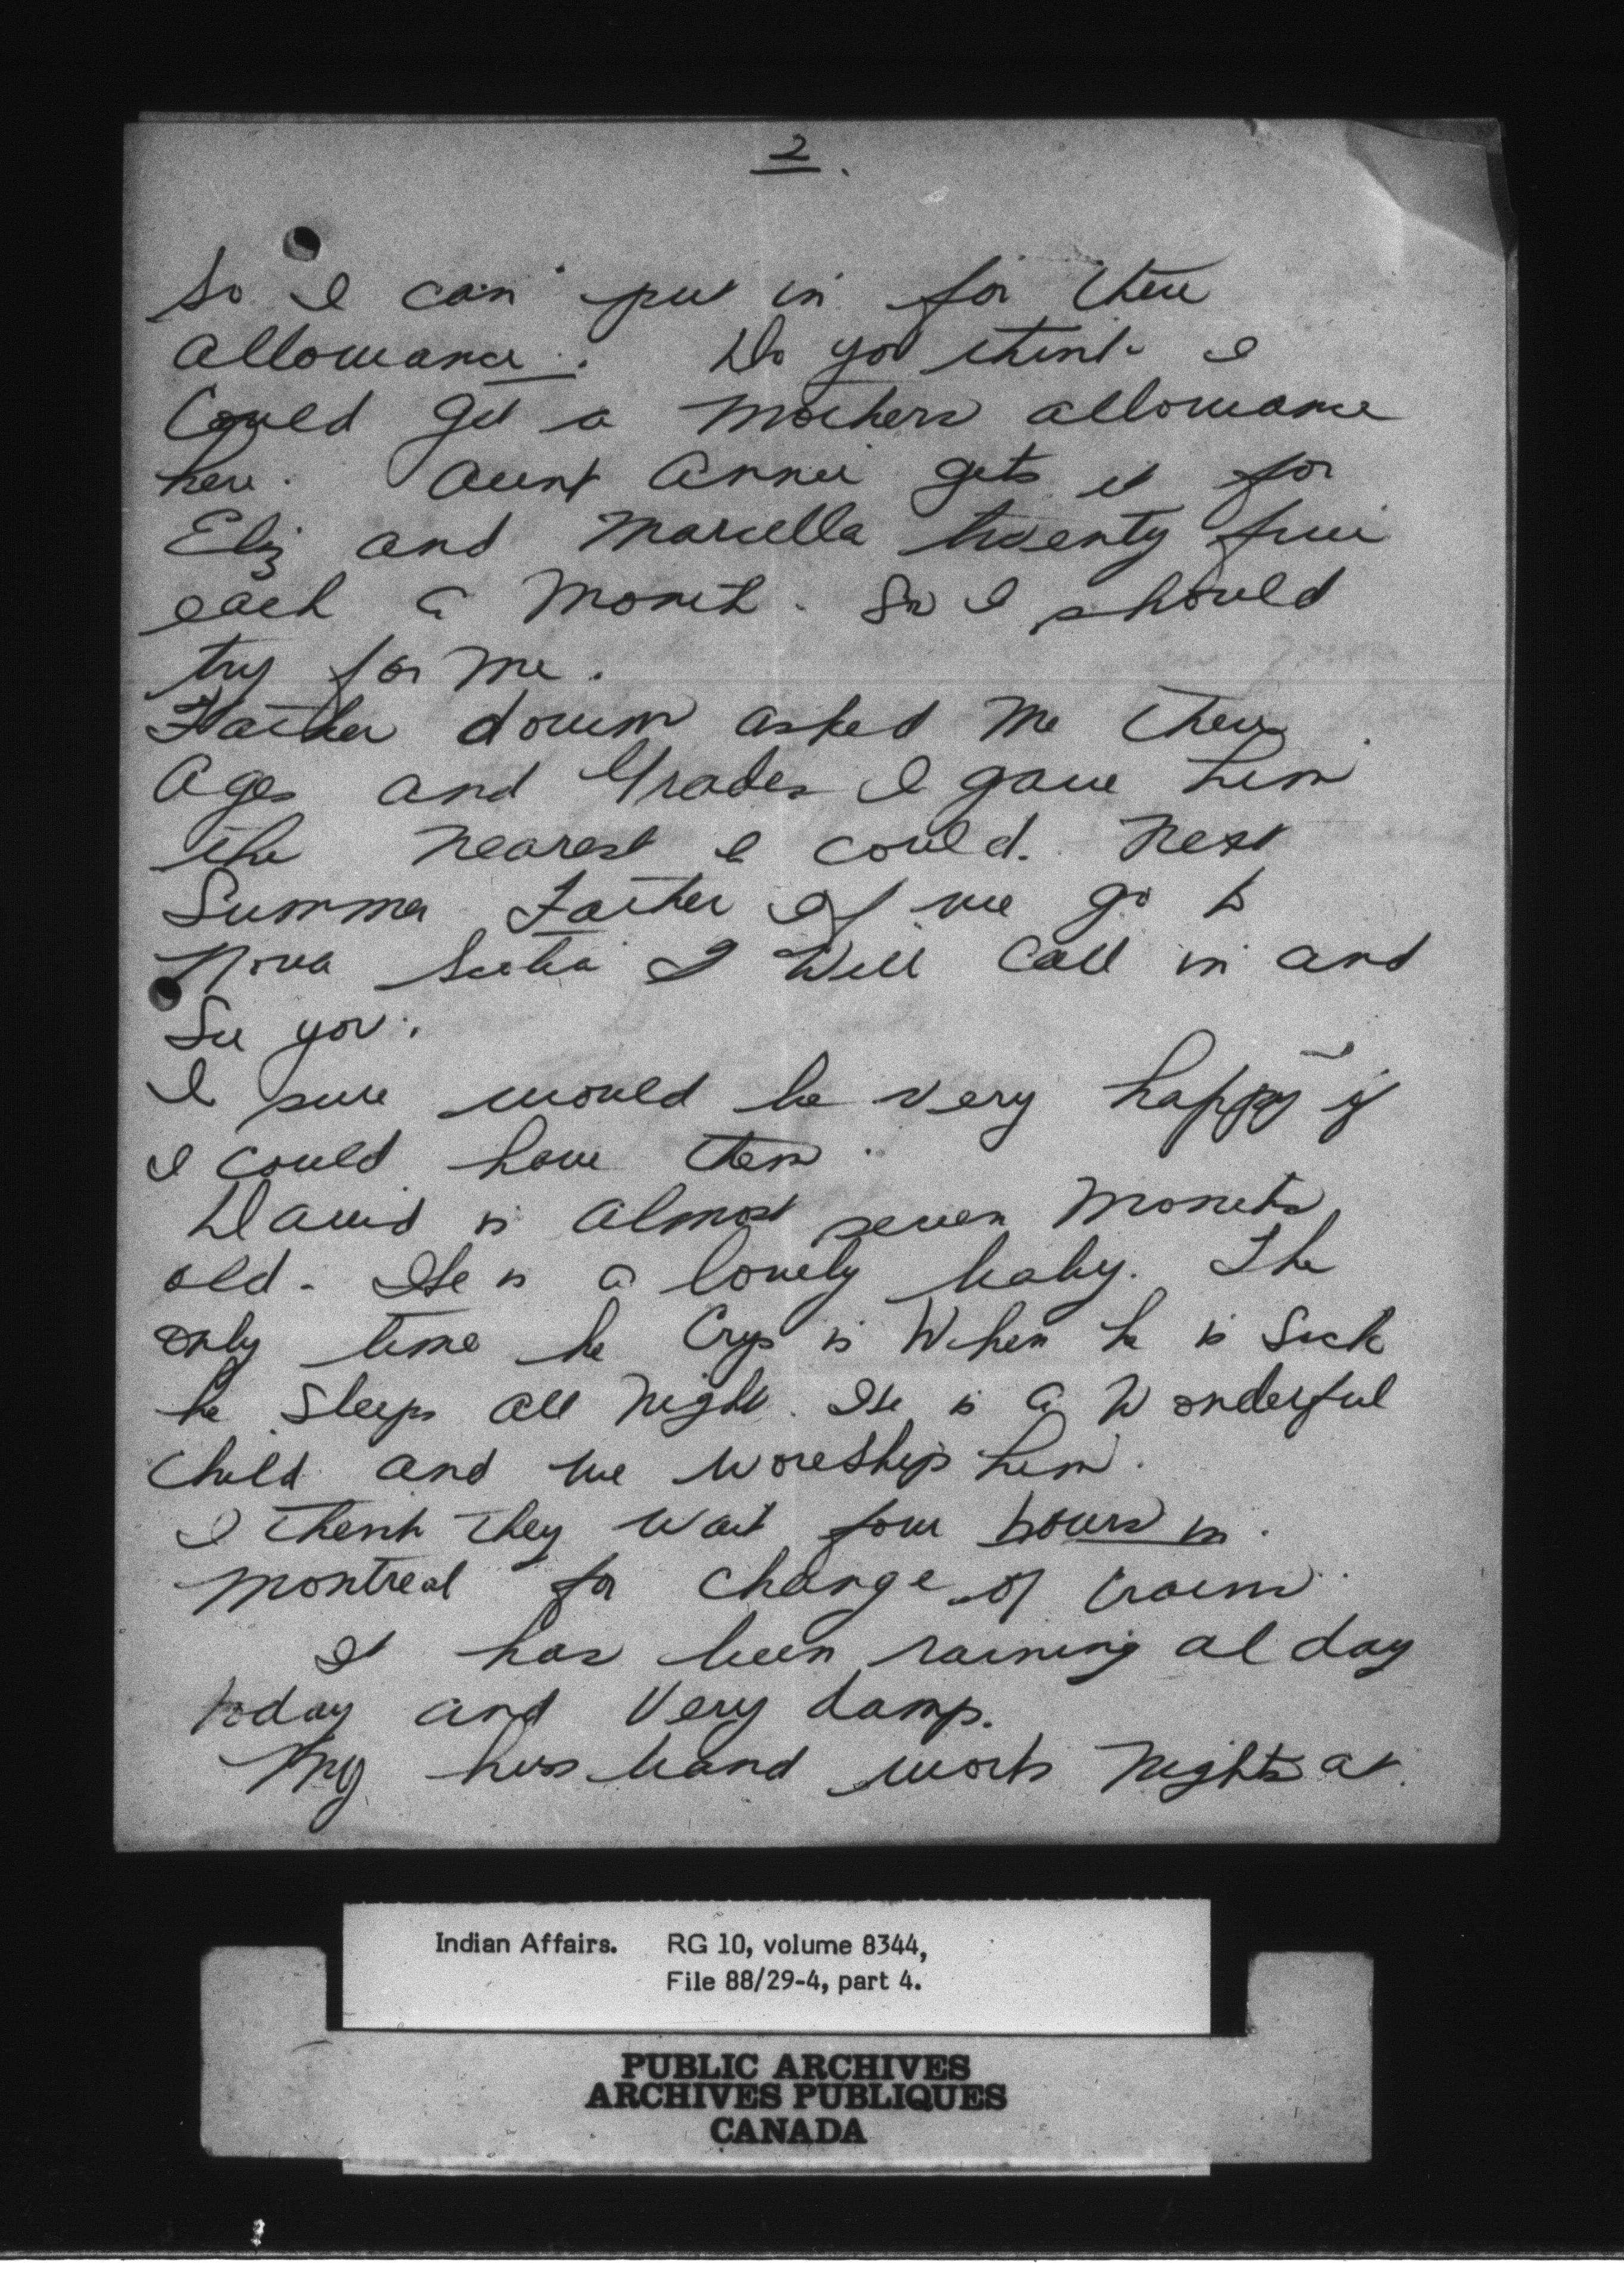 2.
So I can put in for there
allowance. Do you think I
Could get a Mothers allowance
here. Aunt Annie gets it for
Eliz and Marcella twenty five
each a Month. So I should
try for me.
Father down asked Me there
Ages and Grades I gave him
the nearest I could. Next
Summer Father If we go to
Nova Scotia I Will Call in and
See you.
I sure would be very happy if
I could have them.
David is almost seven Months
old. He is a lovely baby. The
only time he Crys is When he is Sick
he Sleeps all Night. He is a Wonderful
Child and we woreship him.
I think they wait four hours in
Montreal for change of train
It has been raining al day
today and Very damp.
My husband works Nights at
Indian Affairs. RG 10, volume 8344,
File 88/29-4, part 4.
PUBLIC ARCHIVES
ARCHIVES PUBLIQUES
CANADA